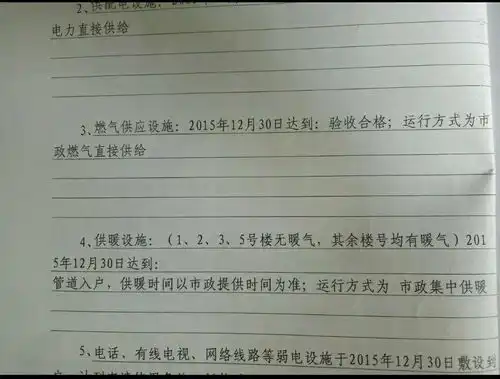 2、供配电设施：
电力直接供给
3、燃气供应设施：2015年12月30日达到：验收合格；运行方式为市
政燃气直接供给
4、供暖设施：（1、2、3、5号楼无暖气，其余楼号均有暖气）201
5年12月30日达到：
管道入户，供暖时间以市政提供时间为准；运行方式为 市政集中供暖
5、电话，有线电视、网络线路等弱电设施于2015年12月30日敷设到